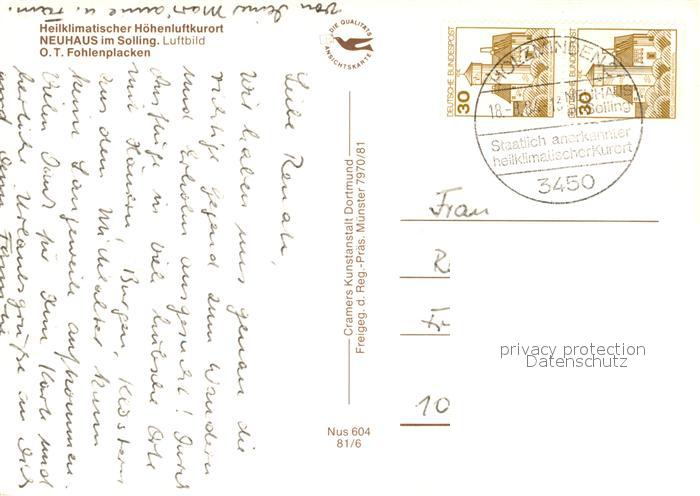 von Deine Marianne u. Fam.
Heilklimatischer Höhenluftkurort
NEUHAUS im Solling. Luftbild
O. T. Fohlenplacken
DIE QUALITÄTS
ANSICHTSKARTE
Liebe Renate,
Wir haben uns genau die
richtige Gegend zum Wandern
und Erholen ausgesucht! Durch
Ausflüge in viele hübsche Orte
mit Häusern, Burgen, Klöstern
aus dem Mittelalter kann
keine Langeweile aufkommen.
Vielen Dank für Deine Karte und
herzliche Urlaubsgrüße an Dich
und Deine Familie
Cramers Kunstanstalt Dortmund
Freigeg. d. Reg.-Präs. Münster 7970/81
Nus 604
81/6
DEUTSCHE BUNDESPOST
30
DEUTSCHE BUNDESPOST
30
HOLZMINDEN
NEUHAUS
Solling
Staatlich anerkannter
heilklimatischer Kurort
3450
Frau
R
10
privacy protection
Datenschutz